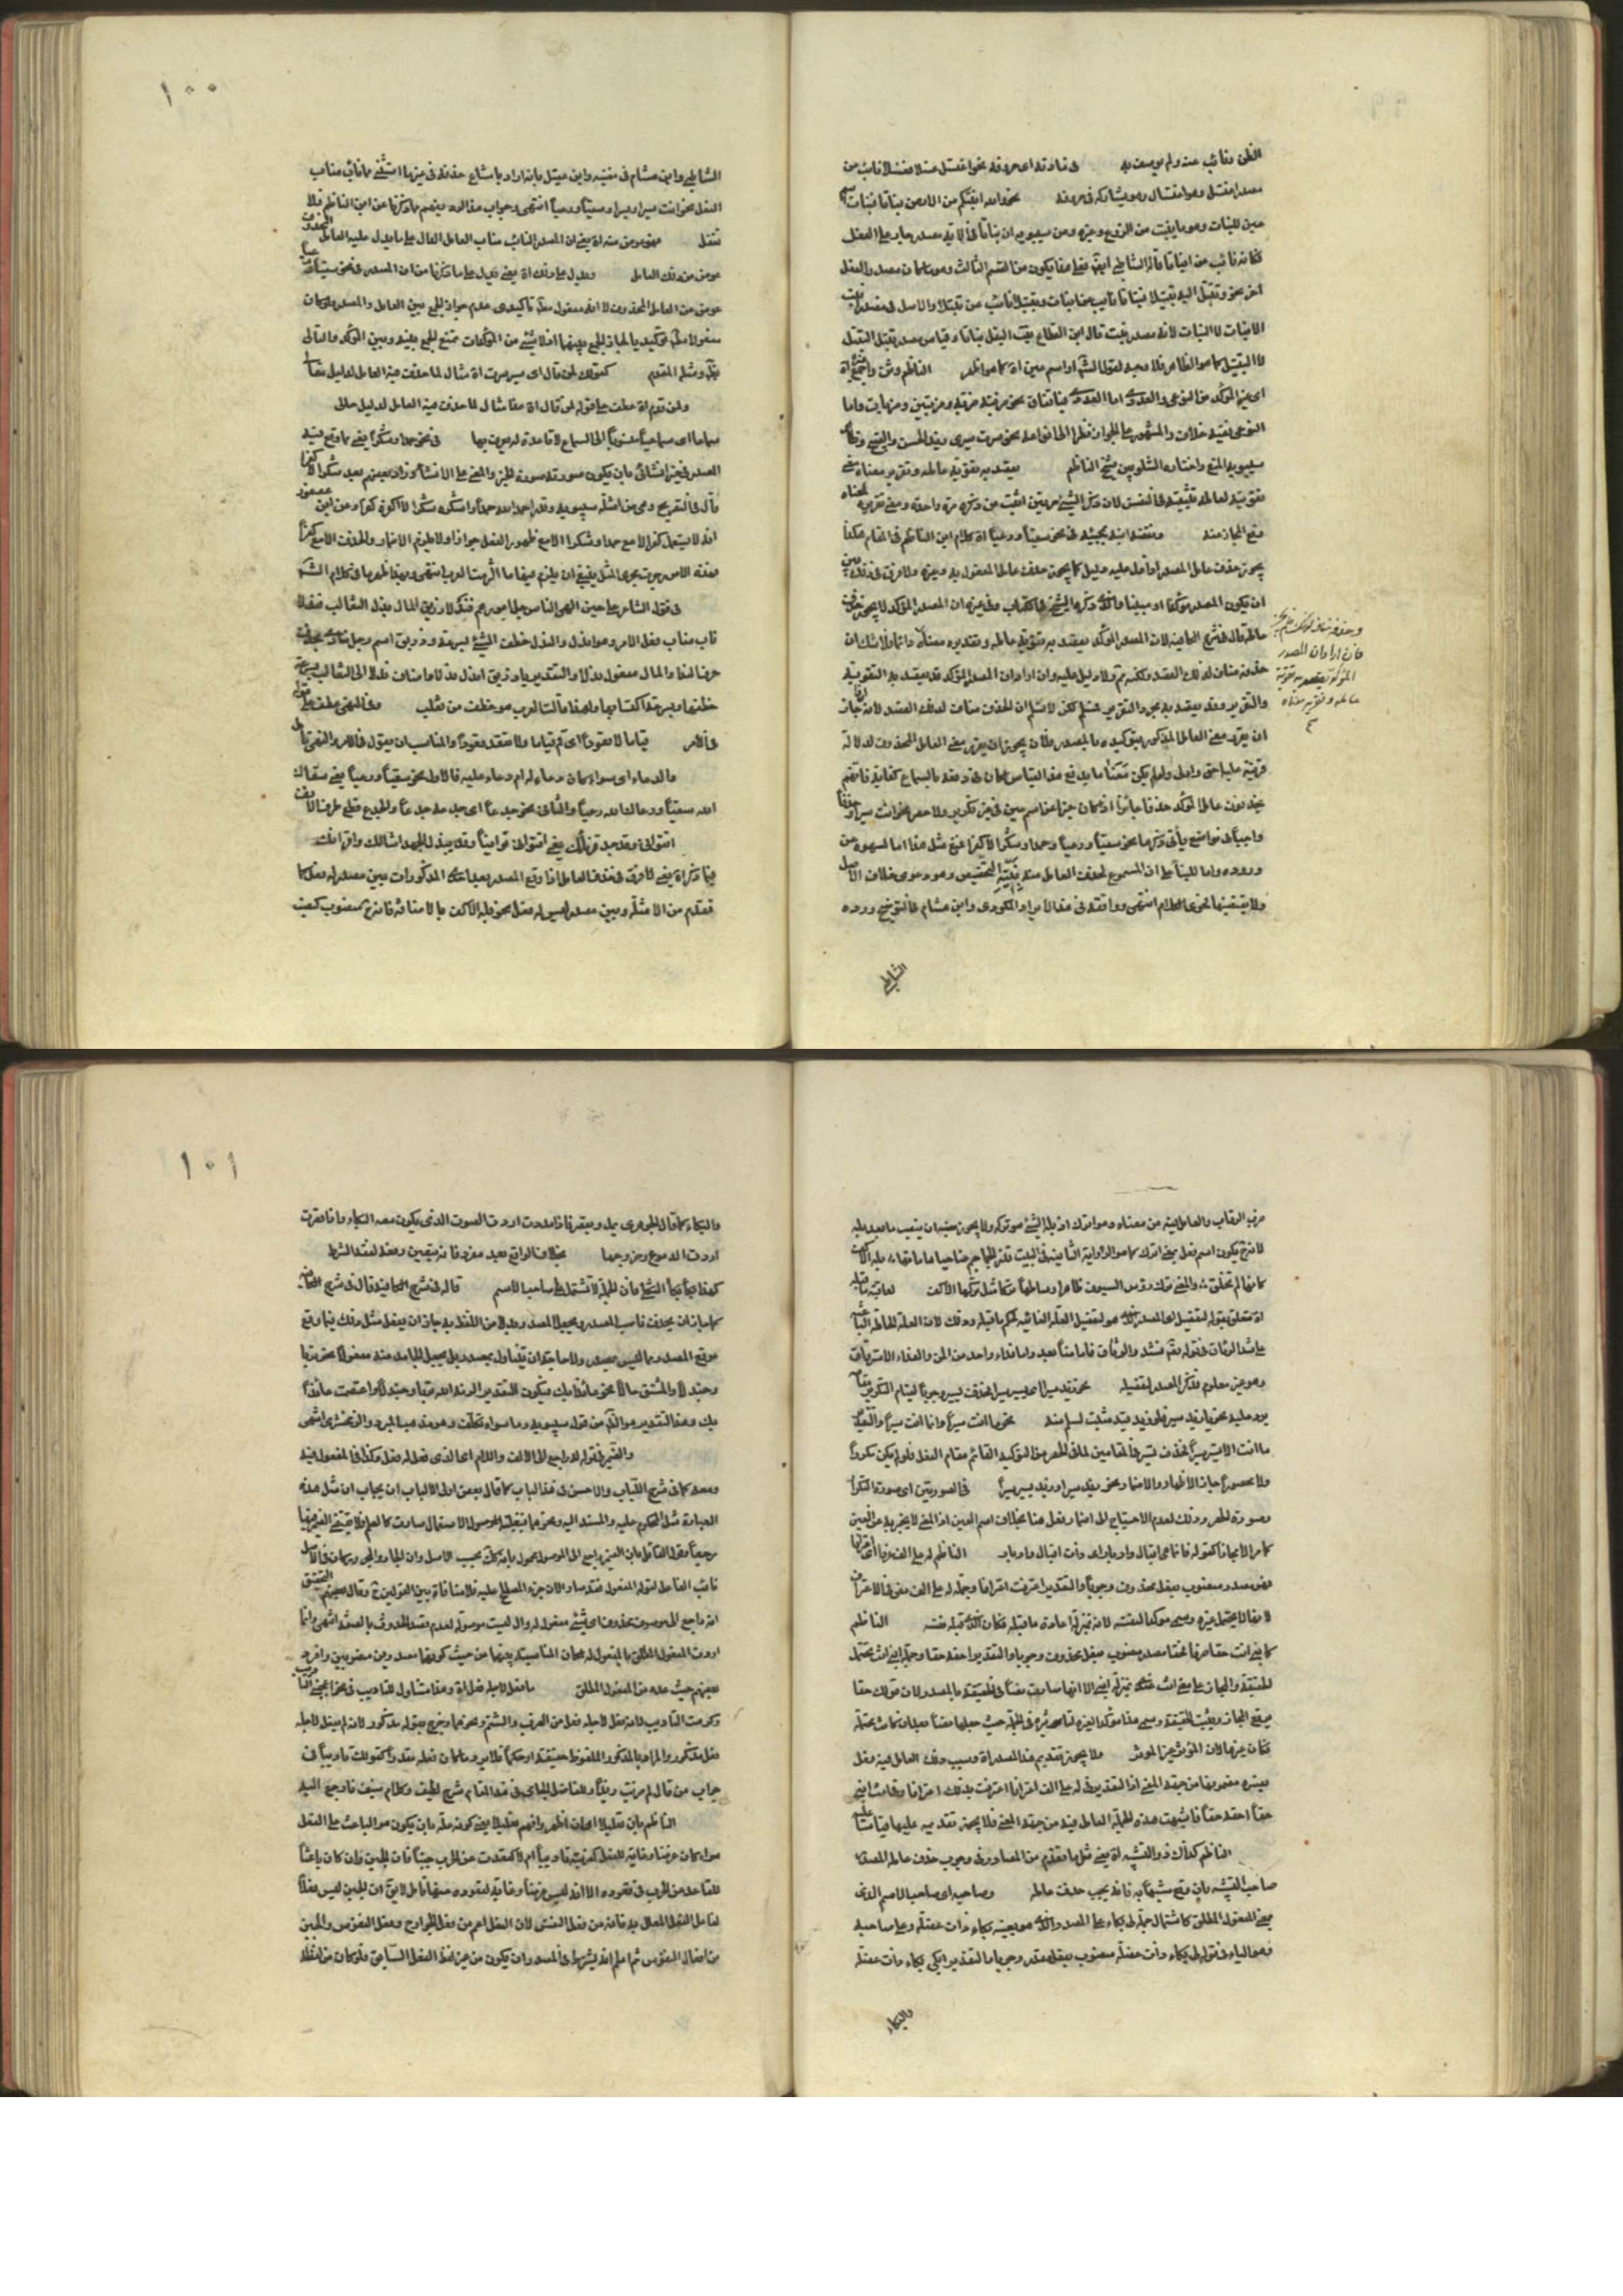 الظن ونائب عنه ولم يوصف به في مادته اى حروفه نحو اغتسل غسلا فغسلا نائب عن
مصدر اغتسل وهو اغتسال وهو يشاركه في حروفه نحو والله انبتكم من الارض نباتا فنبات
عين للنبات وهو ما ينبت من الزرع وغيره وعن سيبويه ان نباتا في الاية مصدر جار على الفعل
فكانه نائب عن انباتا قاله الشاطبى فعلى هذا يكون من القسم الثالث وهو ما كان مصدر والفعل
اخر نحو وتبتل اليه تبتيلا فنباتا نائب عن انبات وتبتيلا نائب عن تبتلا والاصل في مصدر
الانبات لا النبات لانه مصدر نبت قال ابن القطاع نبت البقل نباتا وقياس مصدر تبتل التبتل
لا التبتيل كما هو الظاهر فلا وجه لقول الشم او اسم عين اه كما هو ظ الناظم وثن واجمع
اى غير المؤكد من النوعى والعددى اما العددى فباتفاق نحو ضربته ضربة وضربتين وضربات واما
النوعى ففيه خلاف والمشهور الجواز نظرا الى انواعه نحو سرت سيرى زيد الحسن والقبيح
سيبويه المنع واختاره الشلوبين شيخ الناظم يقصد به تقوية عامله وتقرير معناه
تقويته لعامله تثبيته في النفس لان ذكر الشيء مرتين اثبت من ذكره مرة واحدة ومعنى تقريره
رفع المجاز عنه ونقضه ابنه بمجيئه في نحو سقيا ورعيا اه كلام ابن الناظم في المقام هكذا
يجوز حذف عامل المصدر اذا دل عليه دليل كما يجوز حذف عامل المفعول به وغيره ولا فرق في ذلك بين
ان يكون المصدر مؤكدا او مبينا والذى ذكره الشيخ في الكتاب وفي غيره ان المصدر المؤكد لا يجوز حذف
عامله قال في شرح الكافية لان المصدر المؤكد يقصد به تقوية عامله وتقدير معناه
وحذفه مناف لذلك
فان اراد ان المصدر
المؤكد يقصد به تقوية
عامله وتقرير معناه
حذفه مناف لذلك القصد ولكنه ثم ولا دليل عليه وان اراد ان المصدر المؤكد قد يقصد به التقوية
والتقرير وقد يقصد به مجرد التقرير فمسلم لكن لا نسلم ان الحذف مناف لذلك القصد لانه
ان يقرر معنى العامل المذكور بتوكيده بالمصدر فلان يجوز ان يقرر معنى العامل المحذوف لدلالة
قرينة عليه احق واولى ولو لم يكن معنا ما يدفع هذا القياس لكان في دفعه بالسماع كفاية فانهم
يحذفون عامل المؤكد حذفا جائزا اذا كان خبرا عن اسم عين في غير تكرير ولا حصر نحو انت سيرا
واجبا في مواضع يأتى ذكرها نحو سقيا ورعيا وحمدا وشكرا لا كفرا فمنع مثل هذا اما لسهو عن
وروده واما للبناء على ان المسوغ لحذف العامل منه نية التخصيص وهو دعوى خلاف الاصل
ولا يقتضيها فحوى الكلام انتهى ووافقه في هذا الايراد المكودى وابن هشام في التوضيح ورده
الشاطبى
١٠٠
الشاطبى وابن هشام في مغنيه وابن عقيل بانه اراد بامتناع حذفه في غير ما استثنى مما ناب مناب
الفعل نحو انت سيرا وسقيا ورعيا انتهى وجواب هذا الرد يفهم مما ذكرنا عن ابن الناظم فلا
تغفل عوض منه اه يعنى ان المصدر النائب مناب العامل الدال على ما يدل عليه العامل
عوض من ذلك العامل ويدل على ذلك اه يعنى يدل على ما ذكرنا من ان المصدر في نحو سقيا
عوض عن العامل المحذوف لا انه مفعول مطلق تأكيدى عدم جواز الجمع بين العامل والمصدر ولو كان
مفعولا مطلقا توكيديا لجاز الجمع بينهما اذ لا شيء من المؤكدات يمتنع الجمع بينه وبين المؤكد والتالى
بط ومثله المقدم كقولك لمن قال اى سير سرت اه مثال لما حذف فيه العامل لدليل
ولمن قدم اه عطف على قوله لمن قال اه هذا مثال لما حذف فيه العامل لدليل حالى
سماعا اى سماعيا منسوبا الى السماع لا قاعدة له يعرف بها في نحو حمدا وشكرا يعنى مما وقع فيه
المصدر في خبر انشائى بان يكون صورته صورة الخبر والمعنى على الانشاء وزاد بعضهم بعد شكرا لا كفرا
قال في التصريح وهي من امثلة سيبويه وقدر احمد الله حمدا واشكره شكرا ولا اكفر كفرا وعن ابن عصفور
انه لا يستعمل كفرا الا مع حمدا وشكرا ولا مع ظهور الفعل جوازا ولا يلزم الاضمار والحذف الا مع كفرا
فهذه الامور جرت مجرى المثل فينبغى ان يلزم فيها ما التزمت العرب انتهى وبهذا ظهر ما في كلام الشم
في قول الشاعر على حين الهى الناس جل امورهم فندلا زريق المال ندل الثعالب فندلا
ناب مناب فعل الامر وهو اندل والندل خطف الشيء بسرعة وزريق اسم رجل منادى بحذف
حرف النداء والمال مفعول ندلا والتقدير يا زريق اندل ندلا واضاف ندلا الى الثعالب
في الامر قياما لا قعودا اى قم قياما ولا تقعد قعودا والمناسب ان يقول في الامر والنهى
والدعاء اى سواء كان دعاء له ام دعاء عليه فالاول نحو سقيا ورعيا يعنى سقاك
الله سقيا ورعاك الله رعيا والثانى نحو جدعا اى جدعه جدعا والجدع قطع طرف الانف
اتوانى وقد جد قرناؤك يعنى اتتوانى توانيا وقد بذل الجهد امثالك واقرانك
فيما ذكر اه يعنى لا فرق في حذف العامل اذا وقع المصدر بعد المذكورات بين مصدر له فعل كما
تقدم من الامثلة وبين مصدر ليس له فعل نحو بله الاكف بالاضافة فانه ح منصوب كنصب
ضرب الرقاب والعامل فيه من معناه وهو اترك اذ بله الشيء هو تركه ولا يجوز فيه ان ينصب ما بعد بله
لانه ح يكون اسم فعل بمعنى اترك كما هو الرواية الثانية في البيت تذر الجماجم ضاحيا هاماتها بله الاكف
كانها لم تخلق والمعنى تترك رؤس السيوف ظاهرا وساطها تركا مثل تركها الاكف لعاقبة ما قبله
اه متعلق بقوله لتفصيل اى المصدر الذى هو لتفصيل العلة الغائية لحكم ما قبله
على شد الوثاق في قوله تعالى فشدوا الوثاق فاما منا بعد واما فداء واحد من المن والفداء الاسترقاق
وهو غير معلوم فذكر المصدر لتفصيله نحو زيد سيرا اى يسير سيرا فحذف يسير وجوبا لقيام التكرير مقامه
ما انت الا تسير سيرا فحذف تسير في المقامين لما في الحصر من التوكيد القائم مقام الفعل فلو لم يكن مكررا
ولا محصورا جاز الاظهار والاضمار نحو زيد سيرا وزيد يسير سيرا في الصورتين اى صورة التكرار
وصورة الحصر وذلك لعدم الاحتياج الى اضمار فعل هنا بخلاف اسم العين اذ المعنى لا يخبر به عن العين
كما مر الا مجازا كقوله فانما هى اقبال وادبار اى ذات اقبال وادبار الناظم له على الف عرفا اى اعترافا
فهو مصدر منصوب بفعل محذوف وجوبا والتقدير اعترفت اعترافا وجملة له على الف نص في الاعتراف
لانها لا يحتمل غيره وسمى موكدا لنفسه لانه بمنزلة اعادة ما قبله فكان الذى قبله نفسه الناظم
كابنى انت حقا صرفا فحقا مصدر منصوب بفعل محذوف وجوبا والتقدير احقه حقا وجملة ابنى انت تحتمل
الحقيقة والمجاز على معنى انت عندى بمنزلة ابنى الا انها صارت نصا في الحقيقة بالمصدر لان قولك حقا
يرفع المجاز ويثبت الحقيقة وسمى هذا مؤكدا لغيره لتأثيره في الجملة حيث جعلها نصا بعد ان كانت محتملة
فكان غيرها لان المؤثر غير المؤثر ولا يجوز تقديم هذا المصدر اه وسبب ذلك العامل فيه فعل
يفسره مضمونها من جهة المعنى اذ التقدير في له على الف اعترافا اعترفت بذلك اعترافا وفي انت ابنى
حقا احقه حقا فاشبهت هذه الجملة العامل فيه من جهة المعنى فلا يجوز تقديمه عليها قياسا عليه
الناظم كذاك ذو التشبيه اه يعنى مثل ما تقدم من المصادر في وجوب حذف عامله المصدر
صاحب التشبيه بان وقع مشبها به فانه يجب حذف عامله وصاحبه اى صاحب الاسم الذى
بمعنى المفعول المطلق كاشتمال جملة لى بكاء على المصدر والذى هو بمعنى بكاء ذات عضلة وعلى صاحبه
وهو الياء في قوله لى بكاء ذات عضلة منصوب بفعل مقدر وجوبا والتقدير ابكى بكاء ذات عضلة
والبكاء
١٠١
والبكاء كما قال الجوهرى يمد ويقصر فاذا مددت اردت الصوت الذى يكون معه البكاء واذا قصرت
اردت الدموع وخروجها بخلاف الواقع بعد مفرد فانه يتعين رفعه لفقد الشرط
كهذا بكاء بكاء الثكلى فان الجملة لا تشتمل على صاحب الاسم قال في شرح الكافية وقال في شرح
كما جاز ان يحذف ناصب المصدر ويجعل المصدر بدلا من اللفظ به جاز ان يفعل مثل ذلك فيما وقع
موقع المصدر مما ليس بمصدر ولا حاجة ان يتناول بمصدر بل يجعل الجامد منه مفعولا نحو تربا
وجندلا والمشتق حالا نحو عائذا بك فيكون التقدير الزمه الله تربا وجندلا واعتصمت عائذا
بك وهذا التقدير هو الظ من قول سيبويه وما سواه تكلف وهو مذهب المبرد والزمخشرى انتهى
والضمير في قوله له راجع الى الالف واللام اى الذى فعل له فعل وكذا في المفعول فيه
ومعه كما في شرح اللباب والاحسن في هذا الباب كما قال بعض اولى الالباب ان يجاب ان مثل هذه
العبارة مثل المحكوم عليه والمسند اليه ونحوهما بنقله الاستعمال صارت كالعلم فلا يقتضى الضمير فيها
مرجعا وقول القائل بان الضمير راجع الى الموصول محمول بانه كك بحسب الاصل وان الجار والمجرور كان في الاصل
نائب الفاعل لقوله المفعول فقد صار الان جزء المصطلح عليه فلا منافاة بين القولين ح وقال بعضهم
انه راجع الى موصوف محذوف اى شيء مفعول له وال ليست موصولة لعدم قصد الحدوث بالصفة انتهى وانما
اردف المفعول المطلق بالمفعول له لمكان المناسبة بينهما من حيث كونهما مصدرين منصوبين
بعضهم حيث عده من المفعول المطلق ما فعل لاجله فعل اه وهذا متناول للتاديب في نحو اعجبنى
وكرهت التاديب فانه فعل لاجله فعل من الضرب والشتم ونحوهما وخرج بقوله مذكور لانه لم يفعل لاجله
فعل مذكور والمراد بالمذكور الملفوظ حقيقة او حكما فلا يرد ما كان فعله مقدرا كقولك تاديبا في
جواب من قال لم ضربت زيدا وللفاضل الجامى في هذا المقام شرح لطيف وكلام منيف فارجع اليه
الناظم بان تعليلا اى ان اظهر وافهم تعليلا يعنى كونه علة بان يكون هو الباعث على الفعل
سواء كان غرضا وغاية للفعل كضربته تاديبا ام لا كقعدت عن الحرب جبنا فان الجبن وان كان باعثا
للقاعد عن الحرب في قعوده الا انه ليس غرضا وغاية لقعوده عنها تامل لا يق ان الجبن ليس فعلا
لفاعل الفعل المعلل به فانه من فعل النفس لان الفعل اعم من فعل الجوارح وفعل النفوس والجبن
من افعال النفوس ثم اعلم انه يشترط في المصدر ان يكون من غير لفظ الفعل السابق فلو كان من لفظه